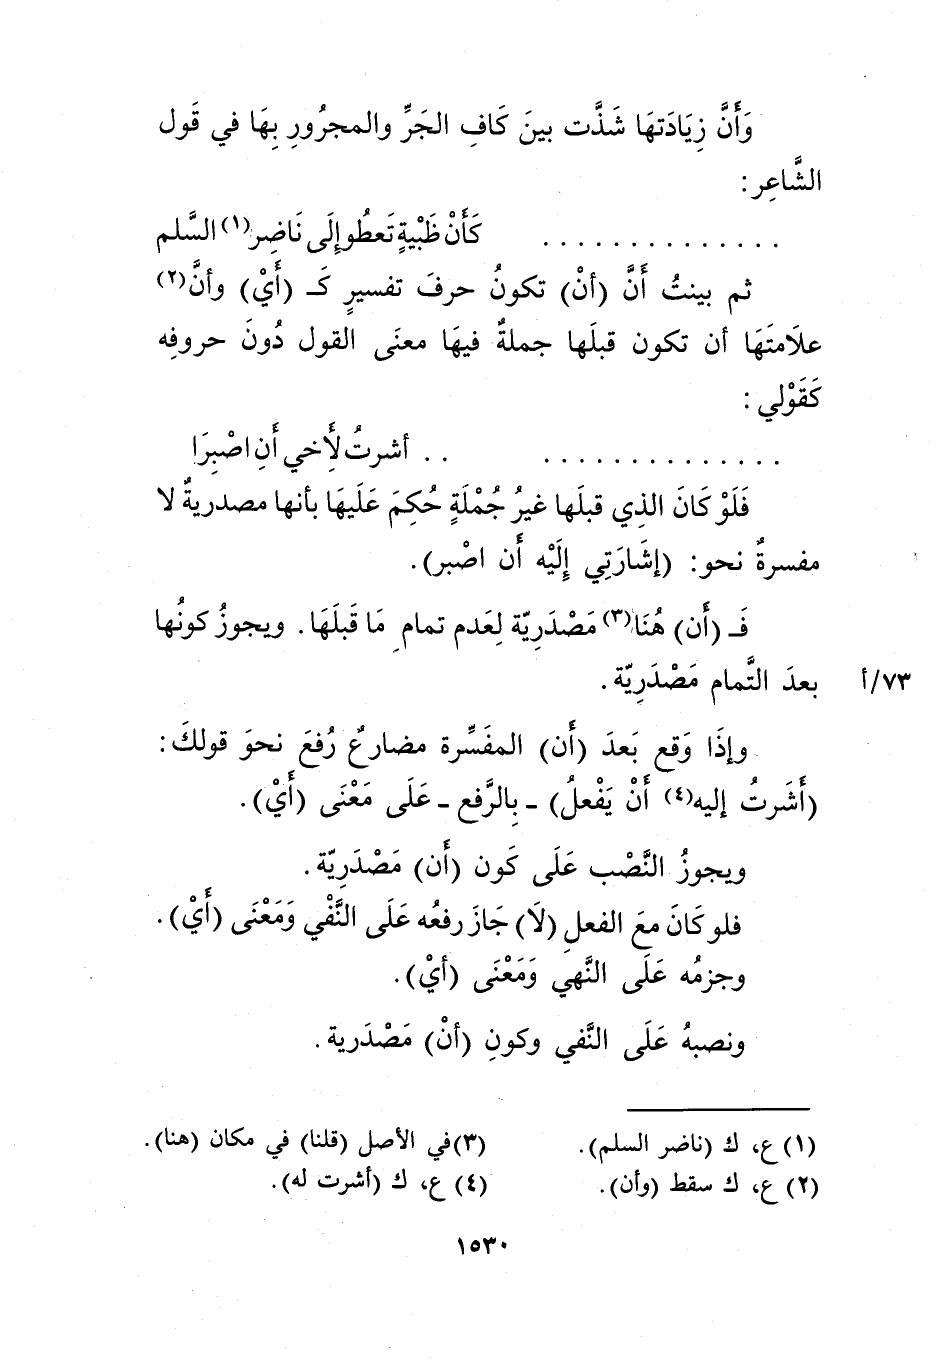 وَأَنَّ زِيَادَتهَا شَذَّت بينَ كَافِ الجَرِّ والمجرُورِ بِهَا في قَول
الشَّاعِر :
. . . . . . . . . . . . . . كَأَنْ ظَبْيةٍ تَعطُو إِلَى نَاضِر(١) السَّلم
ثم بينتُ أَنَّ (أنْ) تكونُ حرفَ تفسيرٍ كَـ (أَيْ) وأنَّ(٢)
علاَمتَهَا أن تكون قبلَها جملةٌ فيهَا معنَى القول دُونَ حروفِه
كَقَوْلي :
. . . . . . . . . . . . . . . . أشرتُ لِأَخي أَنِ اصْبِرَا
فَلَوْ كَانَ الذِي قبلَها غيرُ جُمْلَةٍ حُكِمَ عَلَيهَا بأنها مصدريةٌ لا
مفسرةٌ نحو: (إشَارَتِي إِلَيْه أَن اصْبر).
فَـ (أَن) هُنَا(٣) مَصْدَرِيّة لِعَدم تمامِ مَا قَبلَهَا. ويجوزُ كونُها
بعدَ التَّمام مَصْدَرِيّة. ٧٣/أ
وإذَا وَقع بَعدَ (أَن) المفَسِّرة مضارعٌ رُفعَ نحوَ قولكَ:
(أَشَرتُ إليه(٤) أَنْ يَفْعلُ) ـ بِالرَّفع ـ عَلَى مَعْنَى (أَيْ).
ويجوزُ النَّصْب عَلَى كَون (أَن) مَصْدَرِيّة.
فلو كَانَ معَ الفعلِ (لَا) جَازَ رفعُه عَلَى النَّفْي وَمَعْنَى (أَيْ).
وجزمُه عَلَى النَّهي وَمَعْنَى (أيْ).
ونصبهُ عَلَى النَّفي وكونِ (أنْ) مَصْدَرية.
(١) ع، ك (ناضر السلم).
(٢) ع، ك سقط (وأن).
(٣) في الأصل (قلنا) في مكان (هنا).
(٤) ع، ك (أشرت له).
١٥٣٠